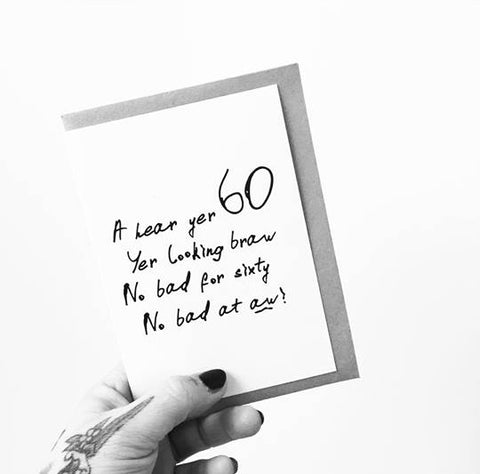 A hear yer 60
Yer looking braw
No bad for sixty
No bad at aw!